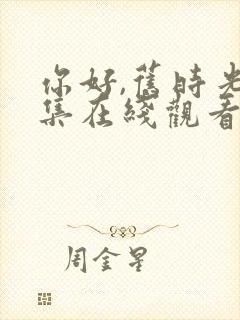 你好,舊時光
集在綫觀看
周金星